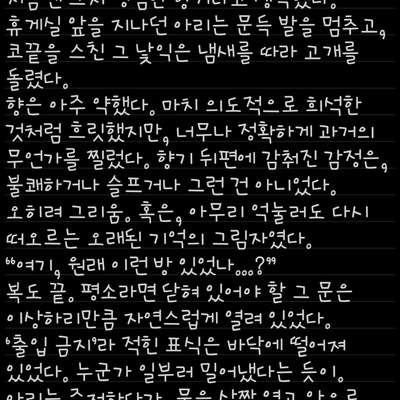 휴게실 앞을 지나던 아리는 문득 발을 멈추고,
코끝을 스친 그 낯익은 냄새를 따라 고개를
돌렸다.
향은 아주 약했다. 마치 의도적으로 희석한
것처럼 흐릿했지만, 너무나 정확하게 과거의
무언가를 찔렀다. 향기 뒤편에 감춰진 감정은,
불쾌하거나 슬프거나 그런 건 아니었다.
오히려 그리움. 혹은, 아무리 억눌러도 다시
떠오르는 오래된 기억의 그림자였다.
“여기, 원래 이런 방 있었나...?”
복도 끝. 평소라면 닫혀 있어야 할 그 문은
이상하리만큼 자연스럽게 열려 있었다.
‘출입 금지’라 적힌 표식은 바닥에 떨어져
있었다. 누군가 일부러 밀어냈다는 듯이.